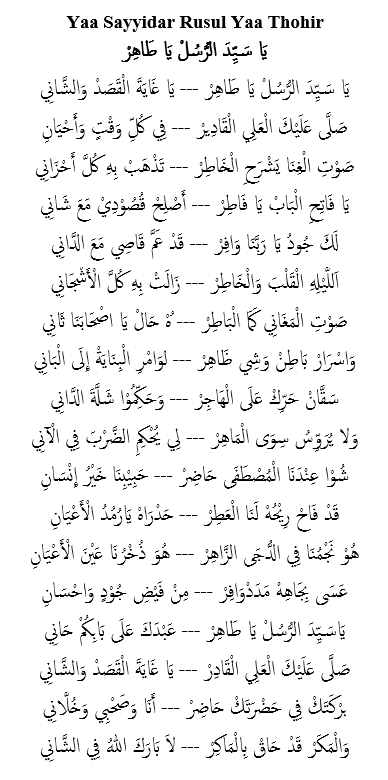 Yaa Sayyidar Rusul Yaa Thohir
يَا سَيِّدَ الرُّسُلْ يَا طَاهِرْ
يَا سَيِّدَ الرُّسُلْ يَا طَاهِرْ --- يَا غَايَةَ الْقَصَدْ وَالشَّانِي
صَلَّى عَلَيْكَ الْعَلِي الْقَادِيرْ --- فِي كُلِّ وَقْتٍ وَأَحْيَانِ
صَوْتِ الْغِنَا يَشْرَحِ الْخَاطِرْ --- تَذْهَبْ بِهِ كُلَّ أَحْزَانِي
يَا فَاتِحِ الْبَابْ يَا فَاطِرْ --- أَصْلِحْ قُصُوْدِيْ مَعَ شَانِي
لَكَ جُودُ يَا رَبَّنَا وَافِرْ --- قَدْ عَمَّ قَاصِي مَعَ الدَّانِي
اَللَّيْلِهِ الْقَلْبَ وَالْخَاطِرْ --- زَالَتْ بِهِ كُلَّ الْأَشْجَانِي
صَوْتِ الْمَغَانِي كَمَا الْبَاطِرْ --- هُ حَالْ يَا اصْحَابَنَا ثَانِي
وَاسْرَارْ بَاطِنْ وَشِي ظَاهِرْ --- لَوَامْرِ الْبِنَايَةْ إِلَى الْبَانِي
سَقَّانْ حَرِّكْ عَلَى الْهَاجِرْ --- وَحَكِّمُوْا شَلَّةَ الدَّانِي
وَلا يُرَوِّسُ سِوَى الْمَاهِرْ --- لِي يُحْكِمِ الضَّرْبَ فِي الْآنِي
شُوْا عِنْدَنَا الْمُصْطَفَى حَاضِرْ --- حَبِيْبِنَا خَيْرُ إِنْسَانِ
قَدْ فَاحْ رِيْحُهْ لَنَا الْعَطِرْ --- حَدْرَاهْ يَارُمُدُ الْأَعْيَانِ
هُوْ نَجْمُنَا فِي الدُّجَى الزَّاهِرْ --- هُوَ ذُخْرُنَا عَيْنَ الْأَعْيَانِ
عَسَى بِجَاهِهْ مَدَدْوَافِرْ --- مِنْ فَيْضِ جُوْدٍ وَاحْسَانِ
يَاسَيِّدَ الرُّسُلْ يَا طَاهِرْ --- عَبْدَكَ عَلَى بَابِكُمْ حَانِي
صَلَّى عَلَيْكَ الْعَلِي الْقَادِرْ --- يَا غَايَةَ الْقَصَدْ وَالشَّانِي
بَرْكَتَكْ فِي حَضْرَتَكْ حَاضِرْ --- أَنَا وَصَحْبِي وَخُلَّانِي
وَالْمَكَرْ قَدْ حَاقْ بِالْمَاكِرْ --- لاَ بَارَكَ اللهُ فِي الشَّانِي